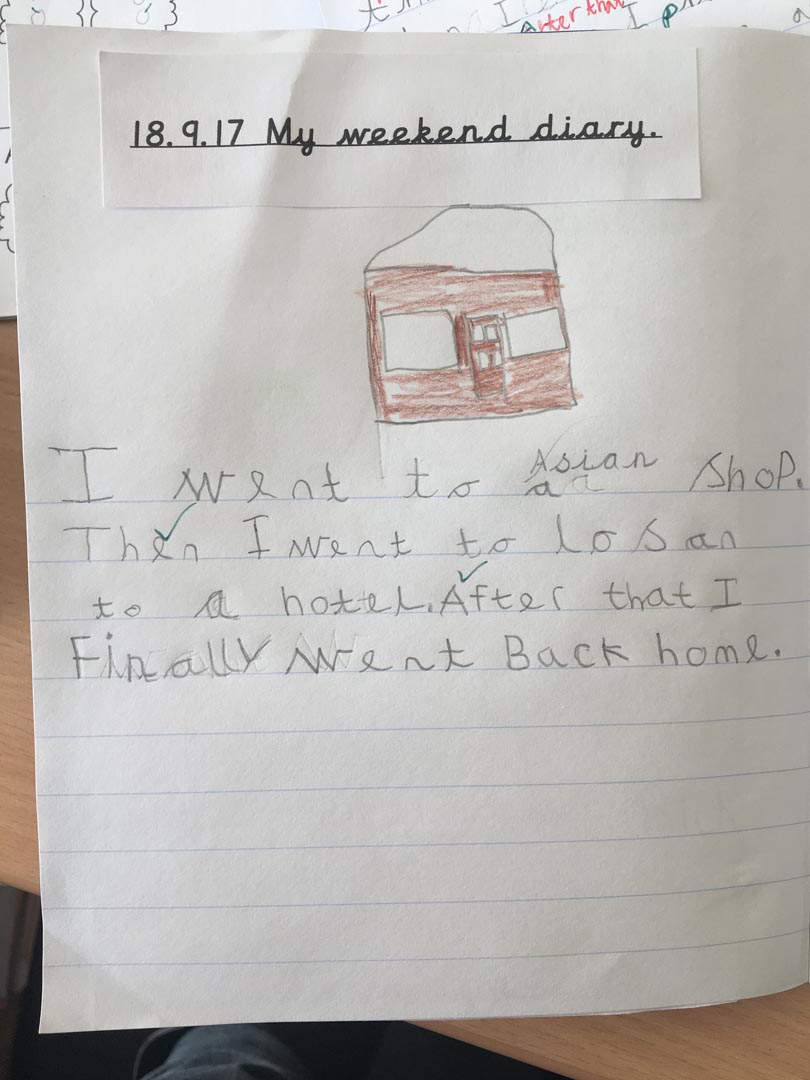 After that I
18.9.17 My weekend diary.
I went to a Asian Shop.
Then I went to losan
to a hotel. After that I
Finally went Back home.